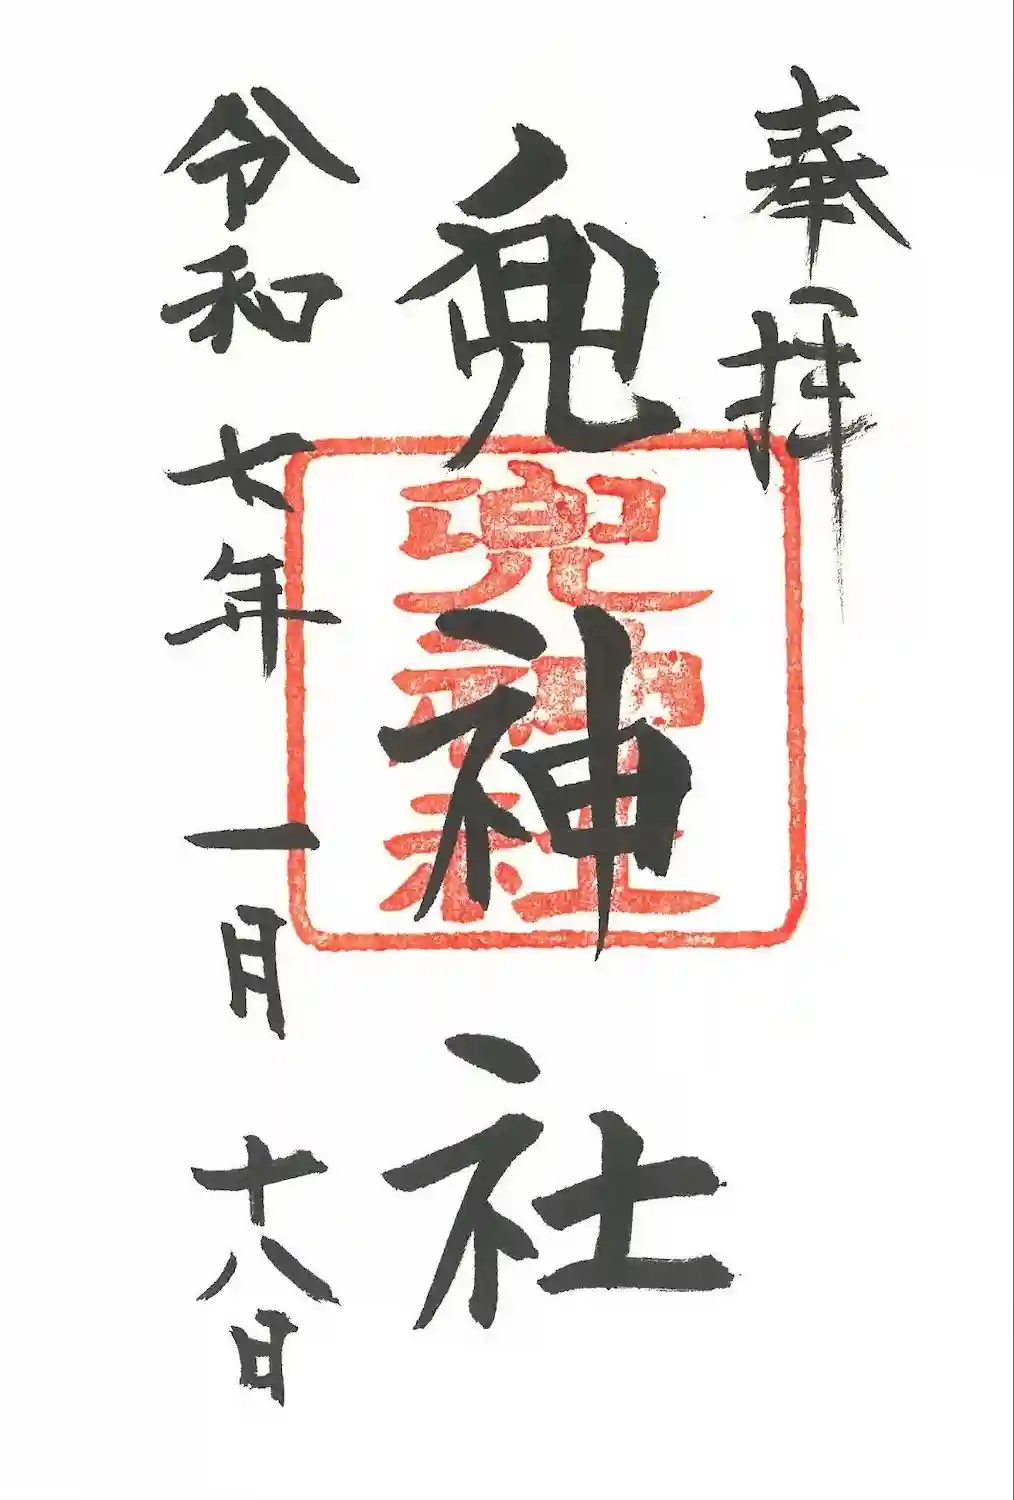 奉拝
兜神社
兜神社
令和七年一月十八日